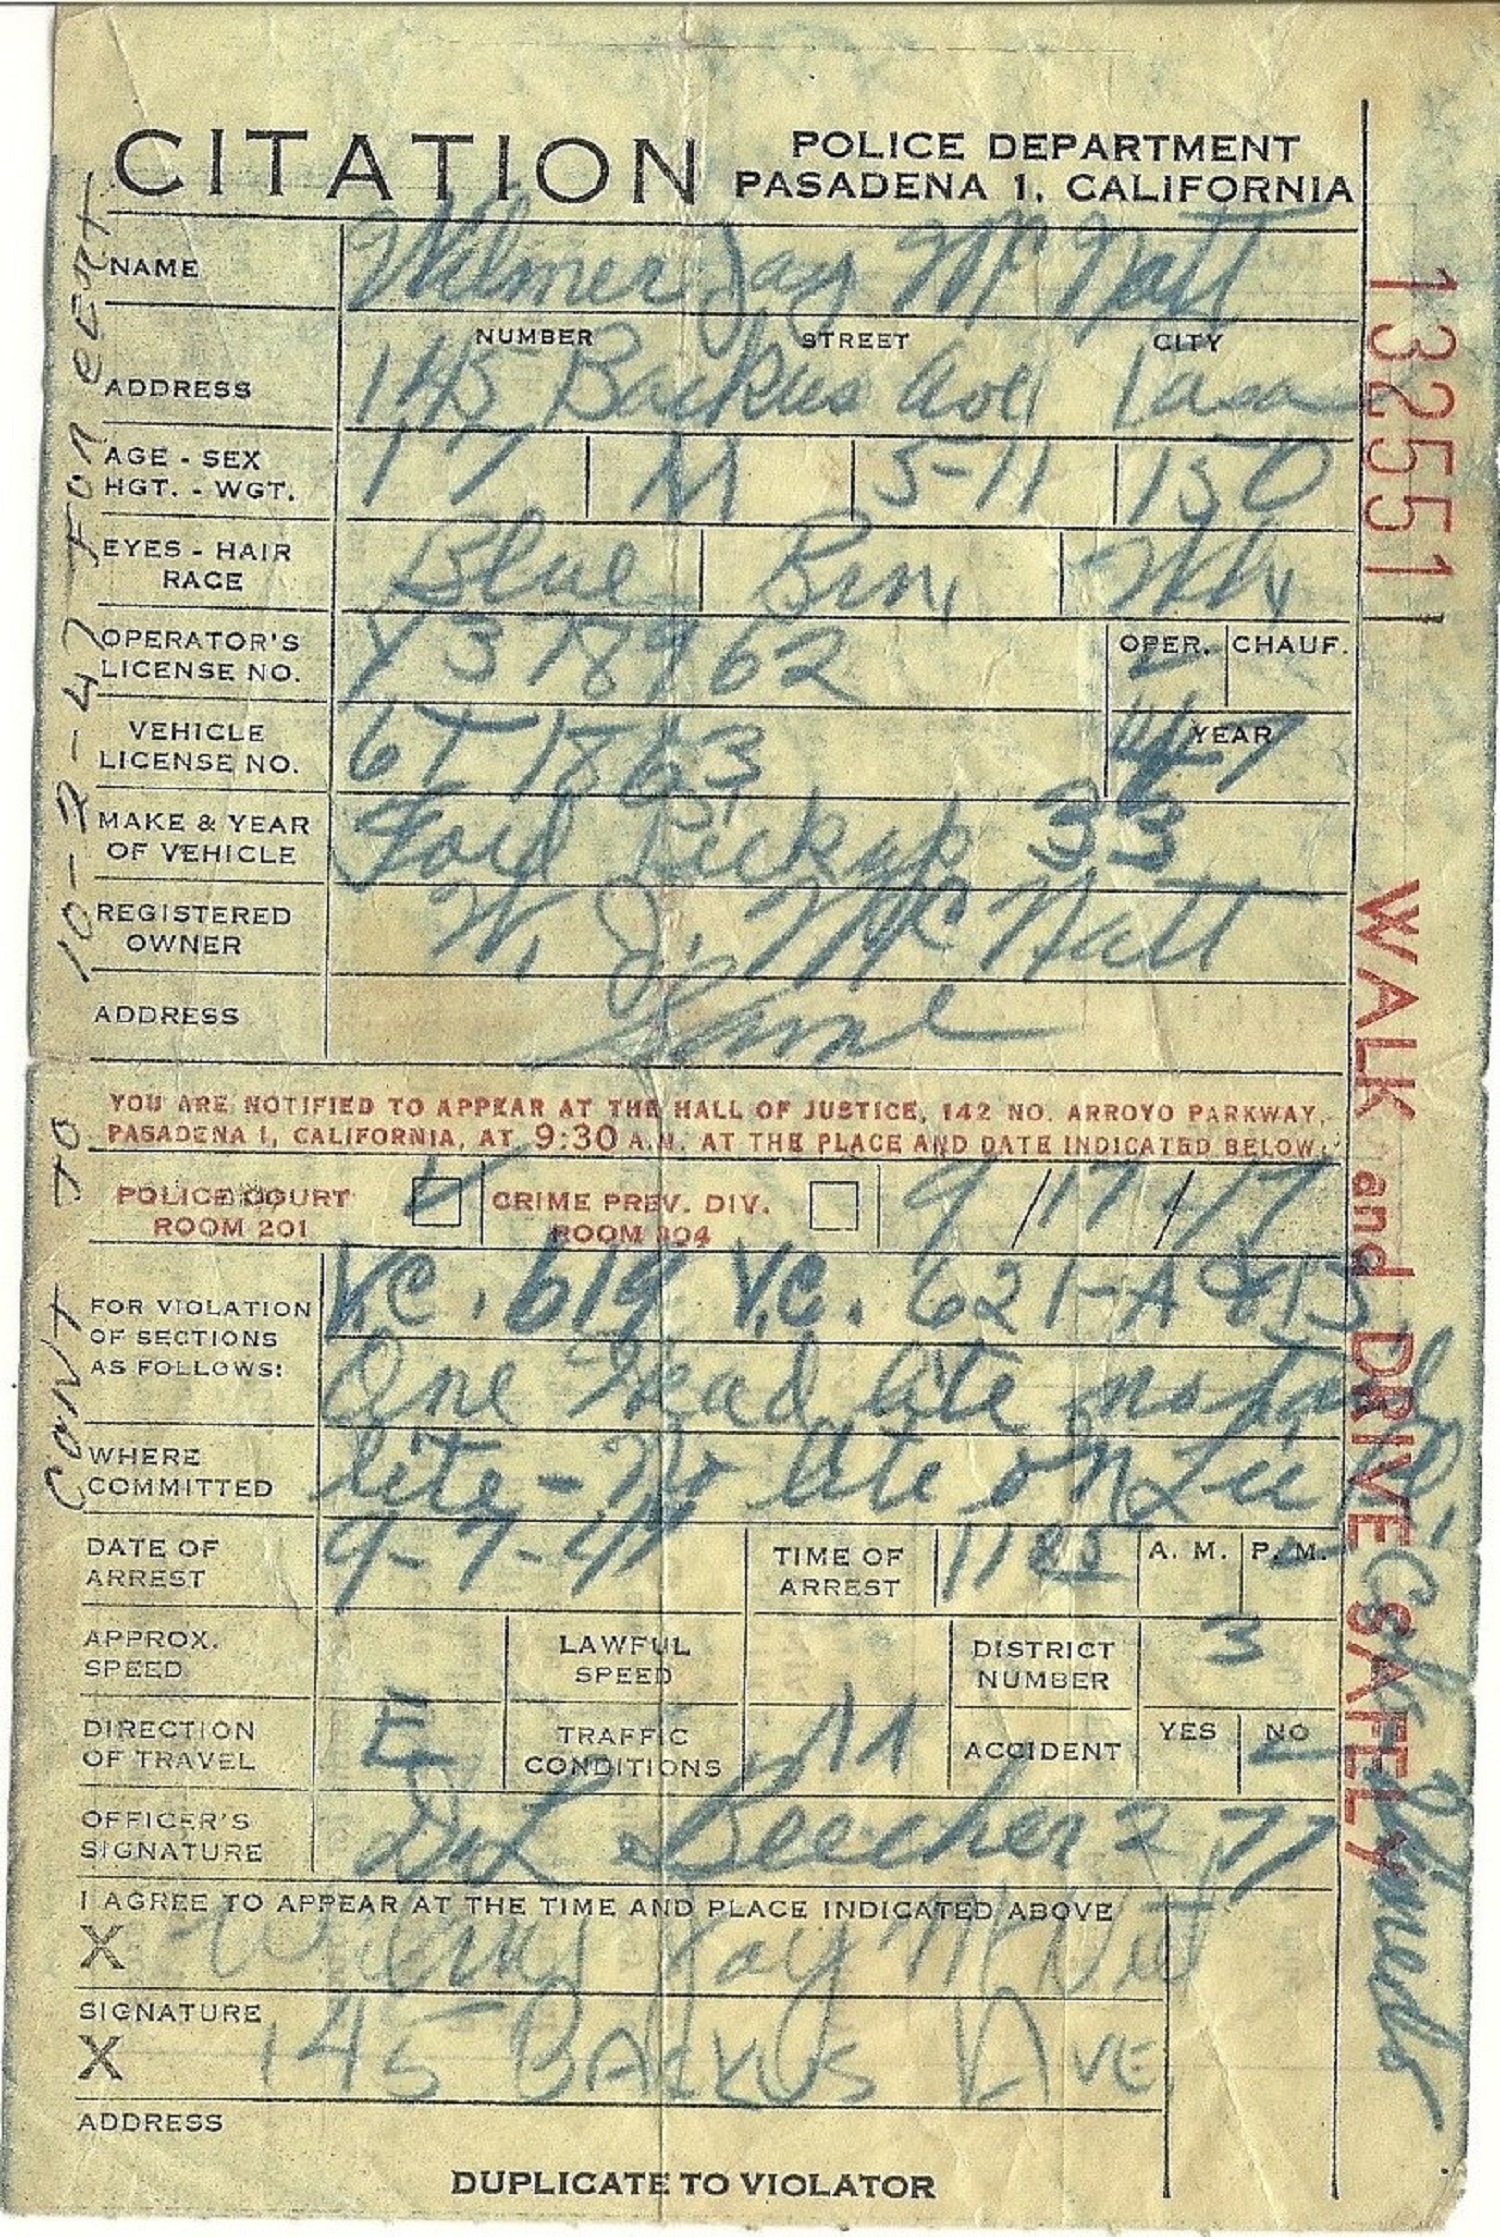 CITATION
POLICE DEPARTMENT
PASADENA 1, CALIFORNIA
NAME Wilmer Jay McNatt
NUMBER STREET CITY
ADDRESS 145 Backus Ave Pasa
AGE - SEX
HGT. - WGT. 17 M 5-11 150
EYES - HAIR
RACE Blue Brn, Wh,
OPERATOR'S
LICENSE NO. Y378962 OPER. CHAUF.
VEHICLE
LICENSE NO. 6T 1863 YEAR 47
MAKE & YEAR
OF VEHICLE Ford Pickup 33
REGISTERED
OWNER W. J. McNatt
ADDRESS Same
YOU ARE NOTIFIED TO APPEAR AT THE HALL OF JUSTICE, 142 NO. ARROYO PARKWAY,
PASADENA 1, CALIFORNIA, AT 9:30 A.M. AT THE PLACE AND DATE INDICATED BELOW.
POLICE COURT
ROOM 201
CRIME PREV. DIV.
ROOM 304
9/17/47
FOR VIOLATION
OF SECTIONS
AS FOLLOWS:
V.C. 619 V.C. 621-A & B
One Head lite no tail
WHERE
COMMITTED
lite - No lite on Lic Pl.
DATE OF
ARREST 9-7-47 TIME OF
ARREST 1105 A. M. P. M.
APPROX.
SPEED
LAWFUL
SPEED
DISTRICT
NUMBER 3
DIRECTION
OF TRAVEL E TRAFFIC
CONDITIONS M ACCIDENT YES NO
OFFICER'S
SIGNATURE D.L. Beecher 277
I AGREE TO APPEAR AT THE TIME AND PLACE INDICATED ABOVE
X Wilmer Jay McNatt
SIGNATURE
X 145 BACKUS AVE
ADDRESS
DUPLICATE TO VIOLATOR
132551
WALK and DRIVE SAFELY
CONT TO 10-7-47 FOR CERT